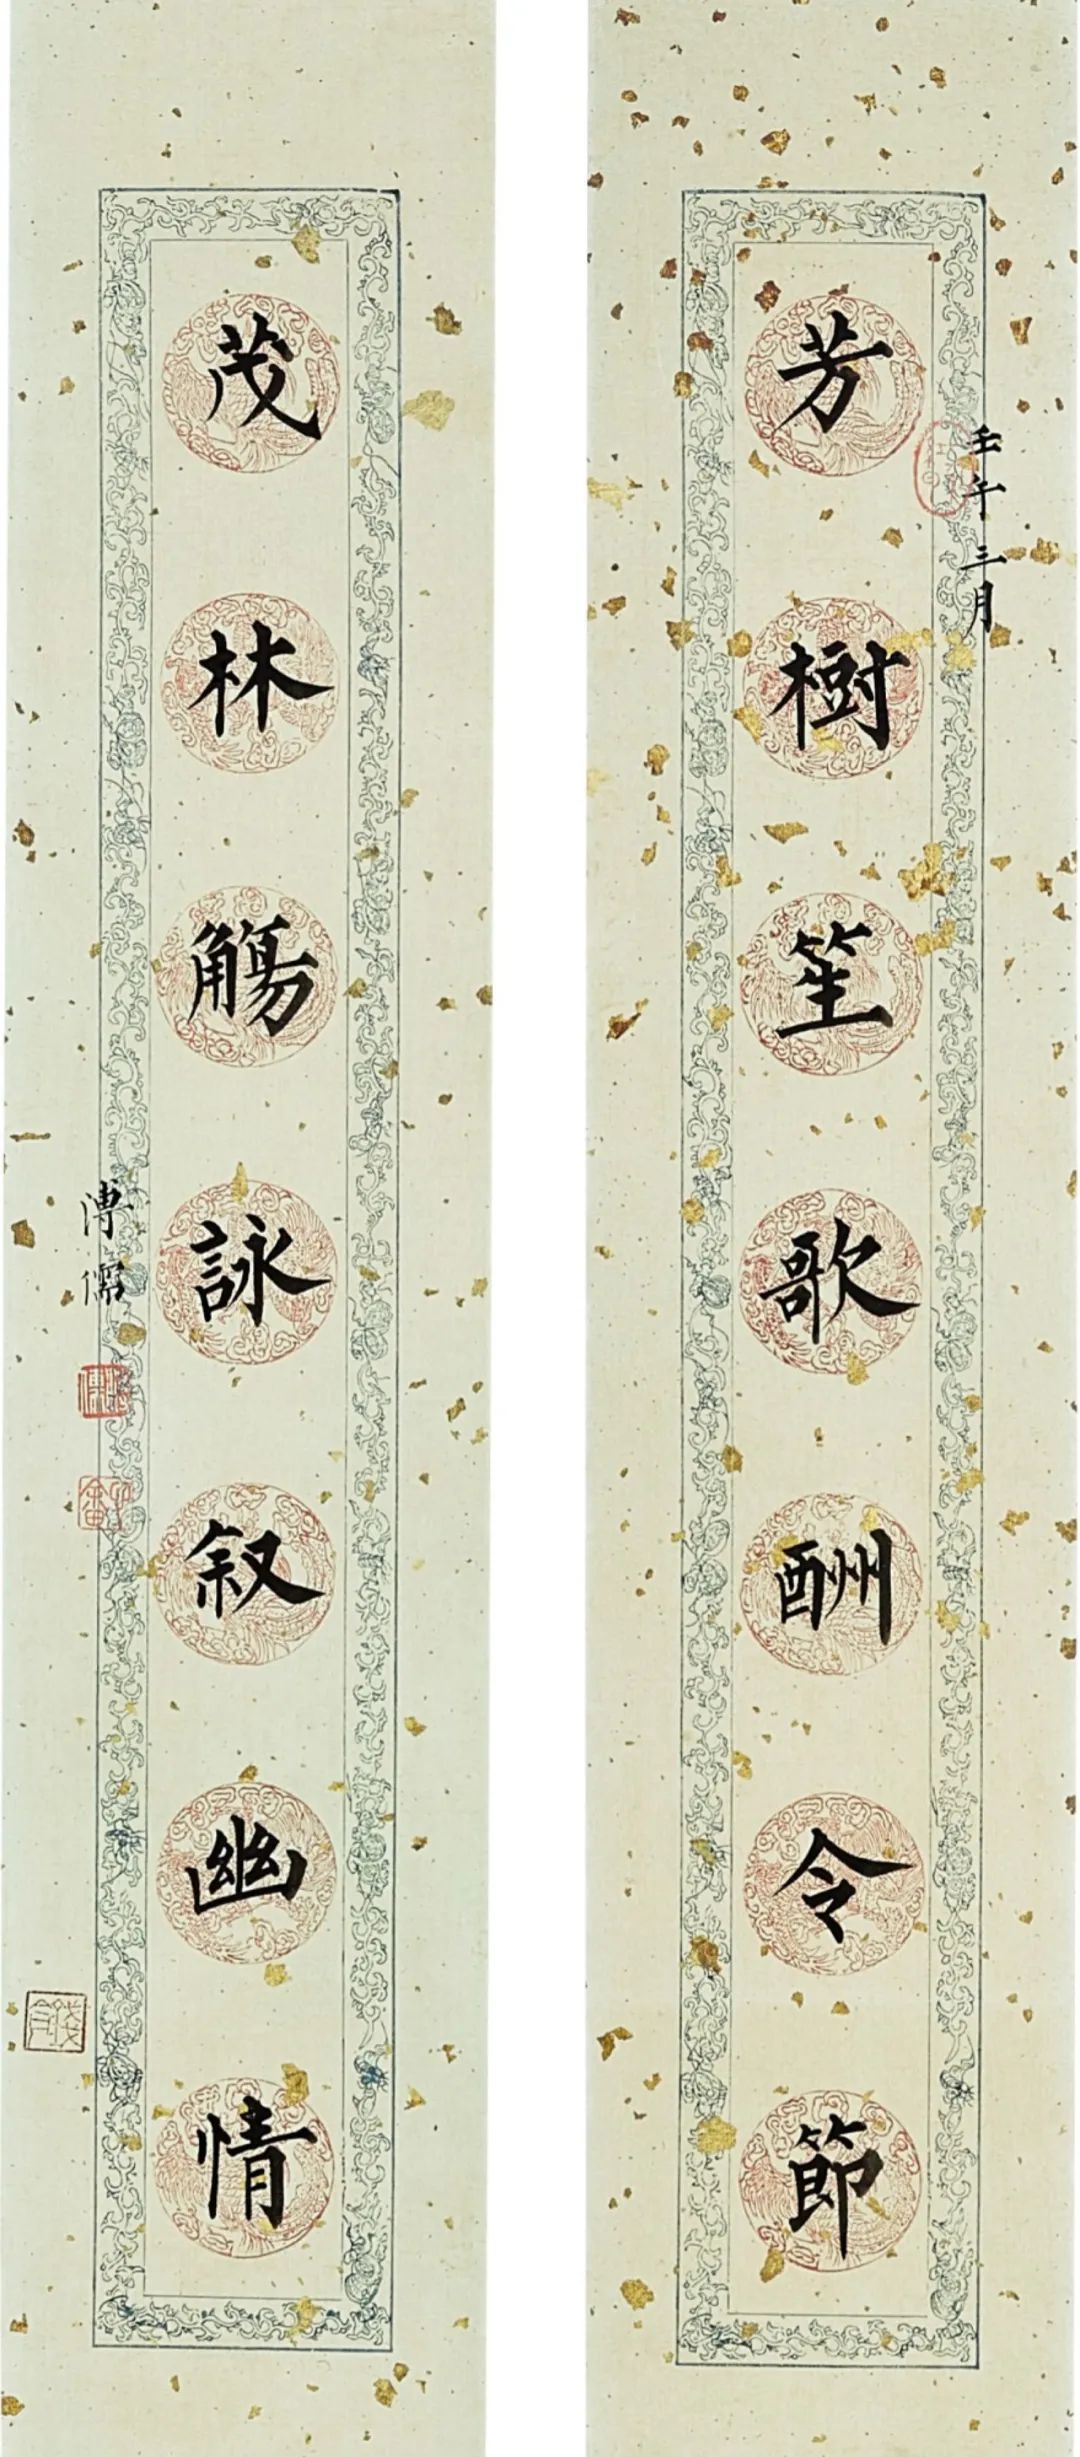 壬午三月
芳樹笙歌酬令節
茂林觴詠叙幽情
溥儒